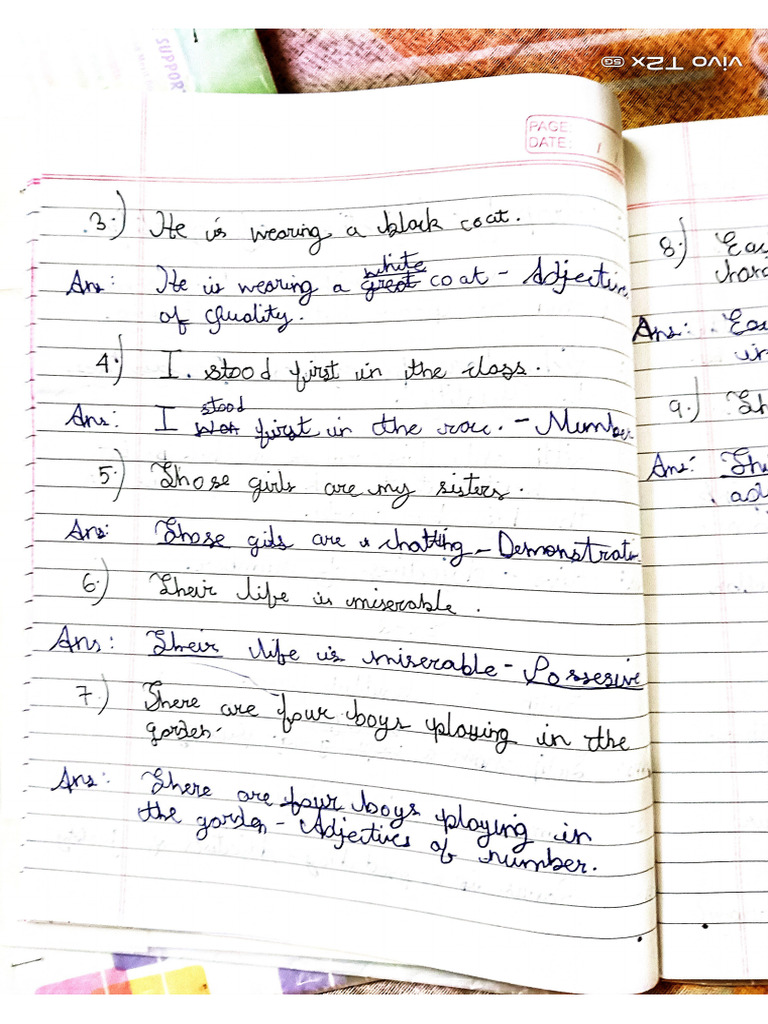 SUPPOR
vivo T2x 5G
PAGE:
DATE: / /
3.) He is wearing a black coat.
Ans: He is wearing a great white coat - Adjective
of Quality.
4.) I. stood first in the class.
Ans: I stood first in the row. - Number
5.) Those girls are my sisters.
Ans: Those gils are chatting - Demonstrati
6.) Their life is miserable.
Ans: Their life is miserable - Possesive
7.) There are four boys playing in the
garden.
Ans: There are four boys playing in
the garden - Adjectives of number.
8.)
Ans:
9.)
Ans: